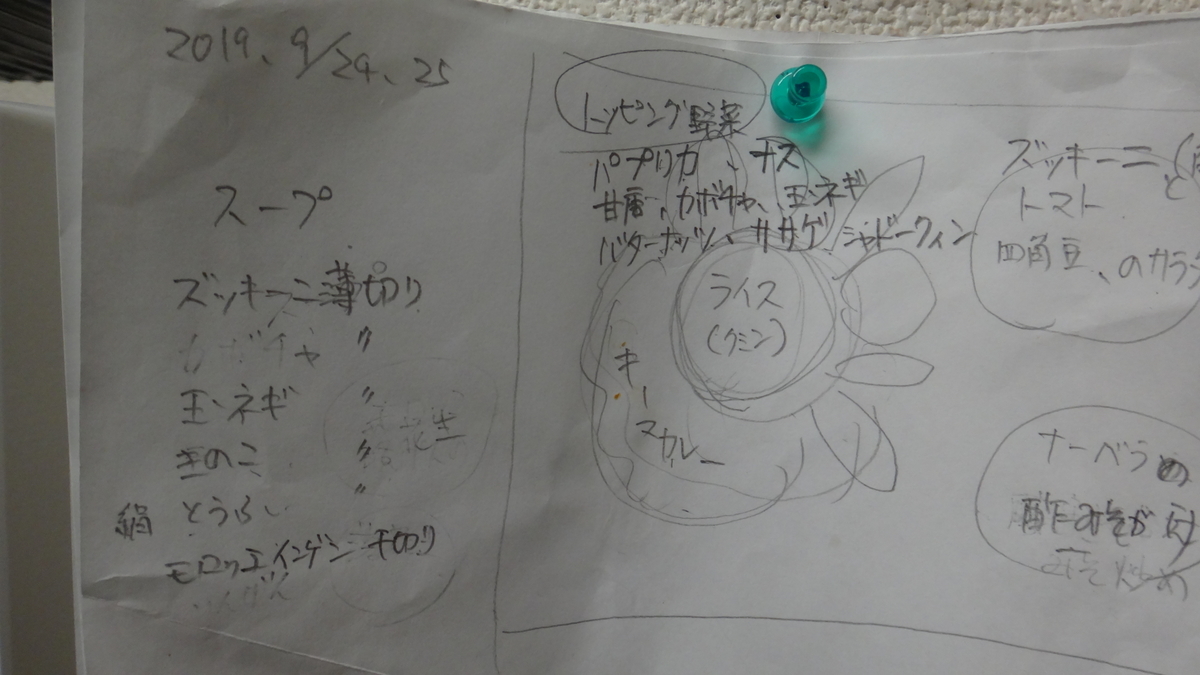 2019. 9/24、25
スープ
ズッキーニ薄切り
カボチャ 〃
玉ネギ 〃
きのこ 〃
絹 とうふ 〃
モロッコインゲン 千切り
トッピング野菜
パプリカ、ナス
甘唐、カボチャ、玉ネギ
バターナッツ、ササゲ シャドークィン
ライス
(クミン)
キーマカレー
ズッキーニ
トマト と
四角豆、のサラダ
ナーベラの
酢みそが
みそ炒め